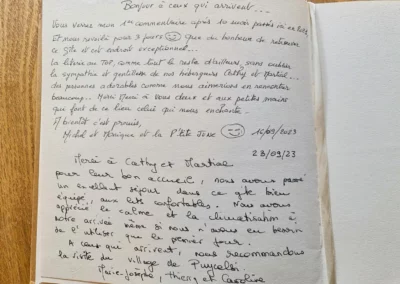 Bonjour à ceux qui arrivent...
Vous verrez mon 1er commentaire après 10 jours passés ici en
Et nous revoilà pour 3 jours Que du bonheur de retrouver
ce gîte et cet endroit exceptionnel...
La literie au TOP, comme tout le reste d'ailleurs, sans oublier
la sympathie et gentillesse de nos hébergeurs Cathy et Martial...
des personnes adorables comme nous aimerions en rencontrer
beaucoup.. Merci Merci à vous deux et aux petites mains
qui font de ce lieu celui qui nous enchante.
A bientôt c'est promis,
Michel et Monique et la P'tite 16/09/2023
28/09/23
Merci à Cathy et Martial
pour leur bon accueil, nous avons passé
un excellent séjour dans ce gîte bien
équipé, aux lits confortables. Nous avons
apprécié le calme et la climatisation à
notre arrivée même si nous n'avons eu besoin
de l'utiliser que le premier jour.
A ceux qui arrivent, nous recommandons
la visite du village de Puycelsi
Marie-Josèphe, Thierry et Caroline